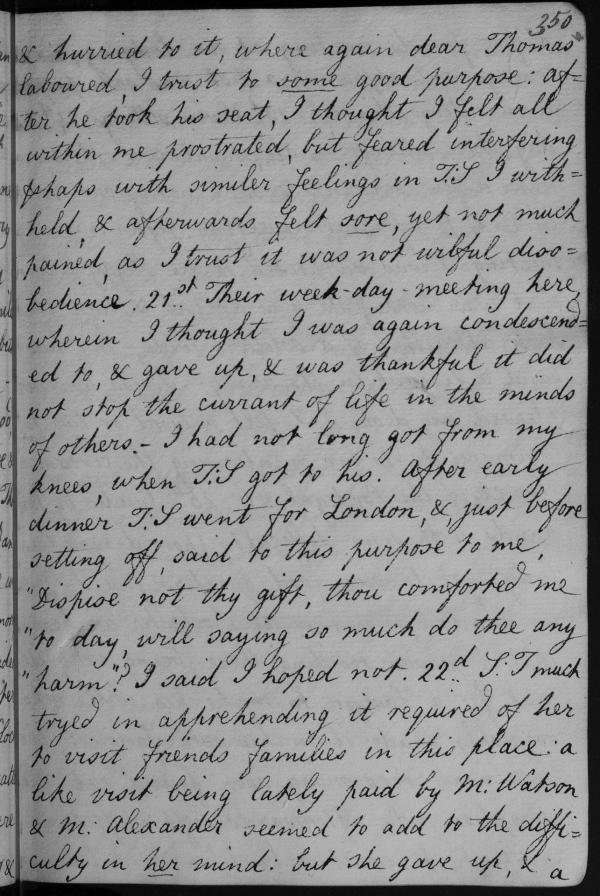 250
& hurried to it, where again dear Thomas
laboured, I trust to some good purpose: af=
ter he took his seat, I thought I felt all
within me prostrated, but feared interfering
pshaps with similer feelings in T:S I with=
held, & afterwards felt sore, yet not much
pained, as I trust it was not wilful diso=
bedience. 21st Their week-day-meeting here,
wherein I thought I was again condescend=
ed to, & gave up, & was thankful it did
not stop the currant of life in the minds
of others. - I had not long got from my
knees, when T:S got to his. After early
dinner T:S went for London, &, just before
setting off, said to this purpose to me,
"Dispise not thy gift, thou comforted me
"to day, will saying so much do thee any
"harm"? I said I hoped not. 22d S:T much
tryed in apprehending it required of her
to visit friends families in this place: a
like visit being lately paid by M: Watson
& M: Alexander seemed to add to the diffi=
culty in her mind: but she gave up, & a